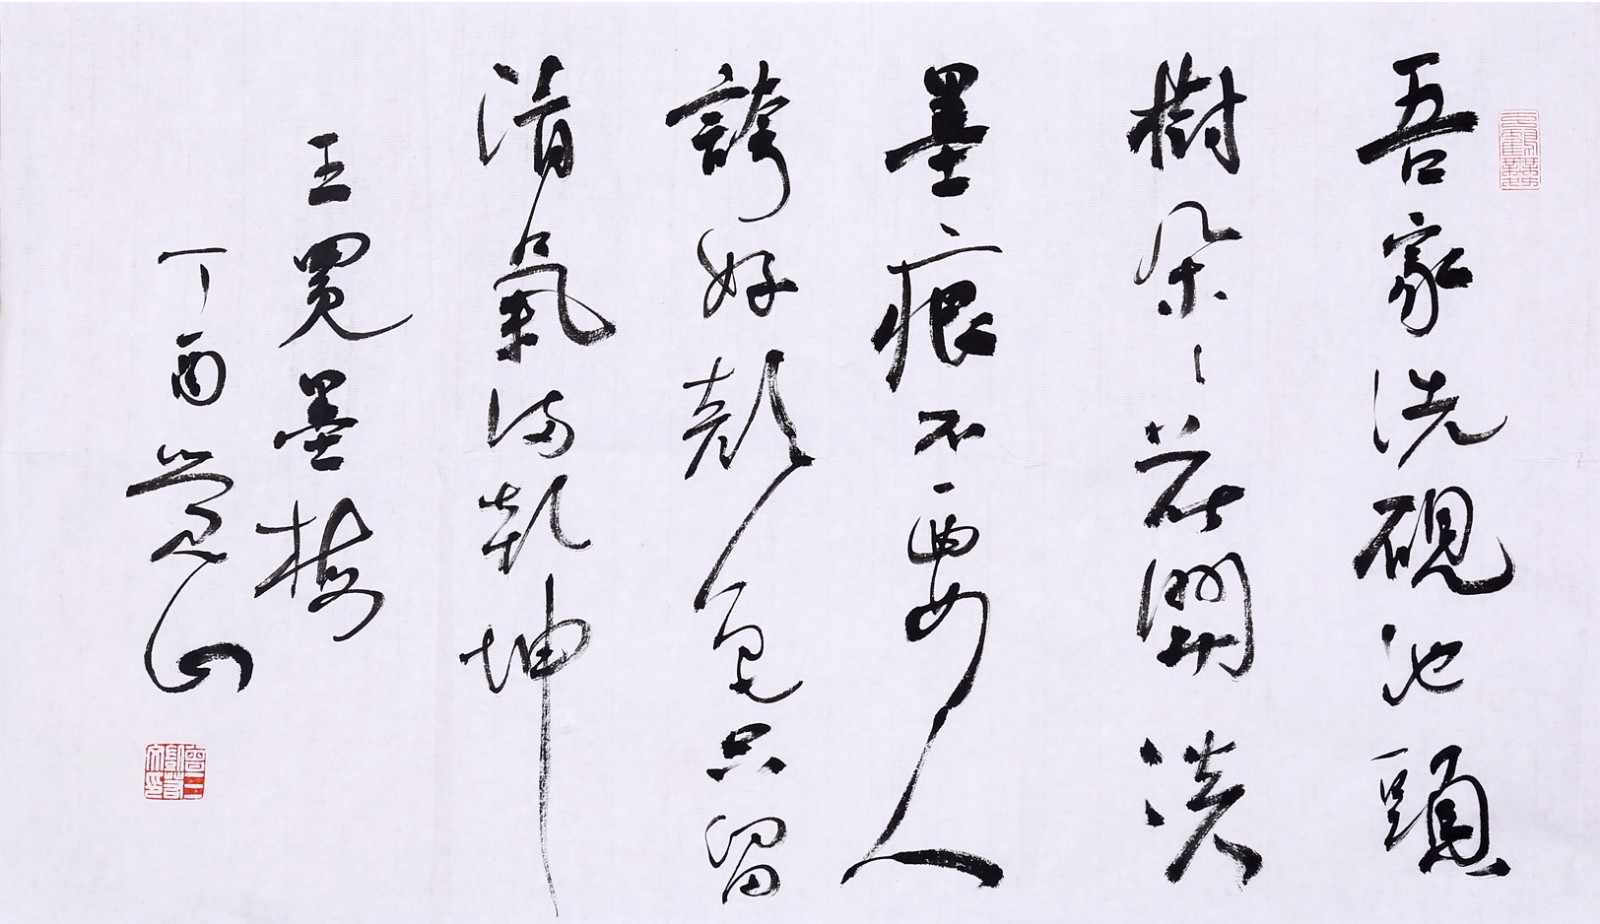 吾家洗硯池頭
樹朵〻花開淡
墨痕不要人
誇好顏色只留
清氣滿乾坤
王冕墨梅
丁酉覺山